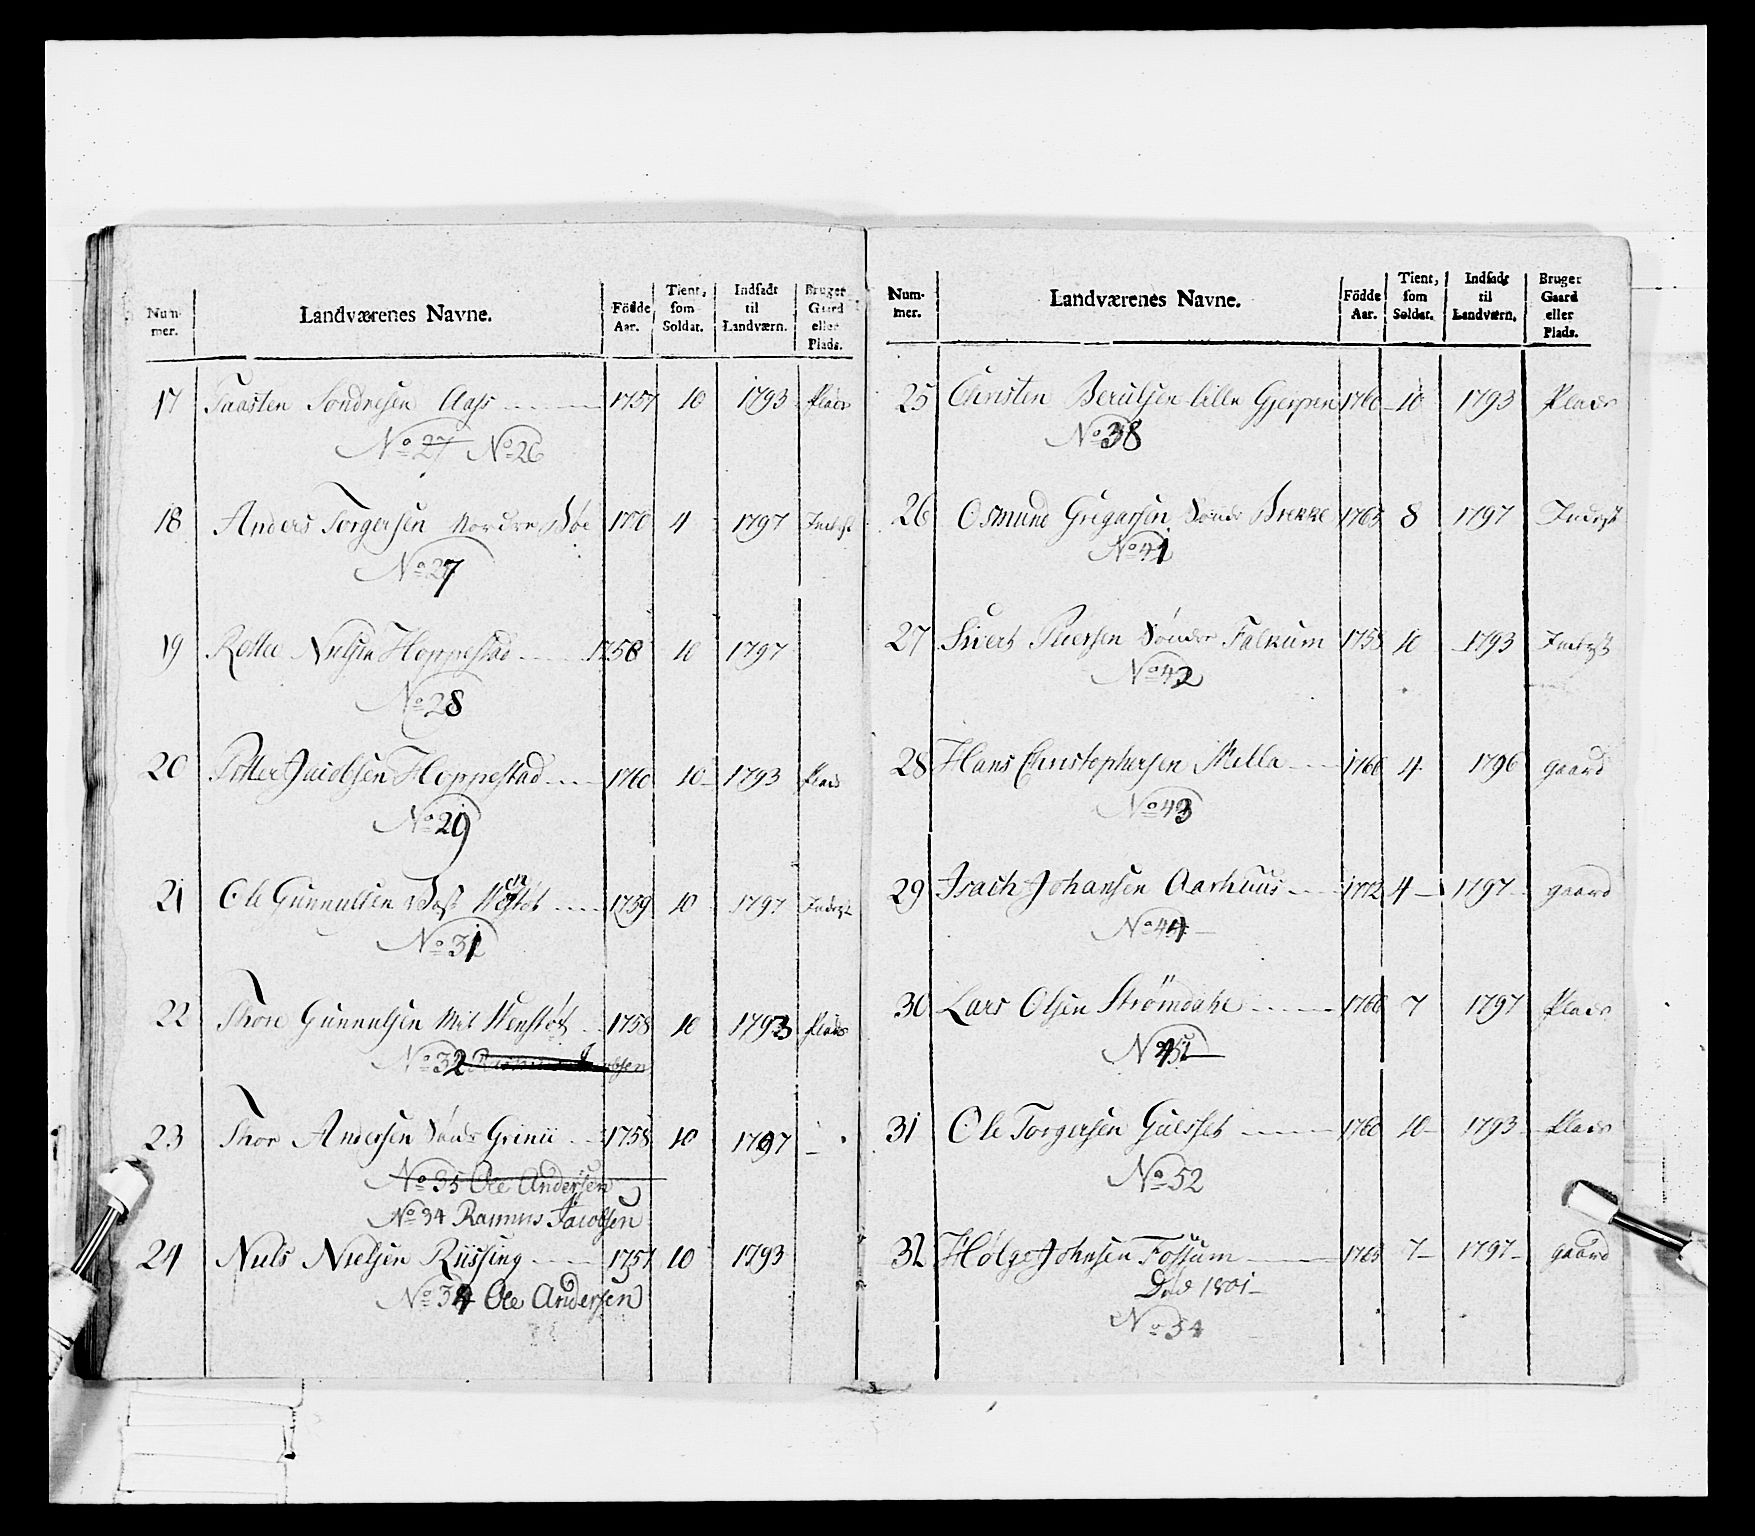 Num-
mer.
Landværenes Navne.
Födde
Aar.
Tient,
som
Soldat.
Indsadt
til
Landværn.
Bruger
Gaard
eller
Plads.
17 Taasten Sondresen Aass 1757 10 1793 Plads
No 27 No 26
18 Anders Torgersen Nordre Bøe 1770 4 1797 Inderst
No 27
19 Nielsen Hoppestad 1758 10 1797
No 28
20 Petter Jacobsen Hoppestad 1760 10 1793 Plads
No 29
21 Ole Gunnulsen 1759 10 1797 Inderst
No 31
22 Thore Gunnulsen Mit Wenstøb 1758 10 1793 Plads
No 32
23 Thor Andersen Sønd. Grinii 1758 10 1797 –
No 35 Ole Andersen
No 34 Rasmus Jacobsen
24 Niels Nielsen Riissing 1751 10 1793
No 34 Ole Andersen
Num-
mer.
Landværenes Navne.
Födde
Aar.
Tient,
som
Soldat.
Indsadt
til
Landværn.
Bruger
Gaard
eller
Plads.
25 Christen Berulsen lille Gjerpen 1760 10 1793 Plads
No 38
26 Osmund Gregarsen Sønd. Brekke 1765 8 1797 Inderst
No 41
27 Sivert Petersen Søndre Falkum 1758 10 1793 Inderst
No 42
28 Hans Christophersen Mella 1766 4 1796 gaard
No 43
29 Isach Johansen Aarhuus 1772 4 1797 gaard
No 44
30 Lars Olsen Strømdahl 1766 7 1797 Plads
No
31 Ole Torgersen Gulsset 1760 10 1793 Plads
No 52
32 Hølge Johnsen Fossum 1765 7 1797 gaard
Død 1801
No 54